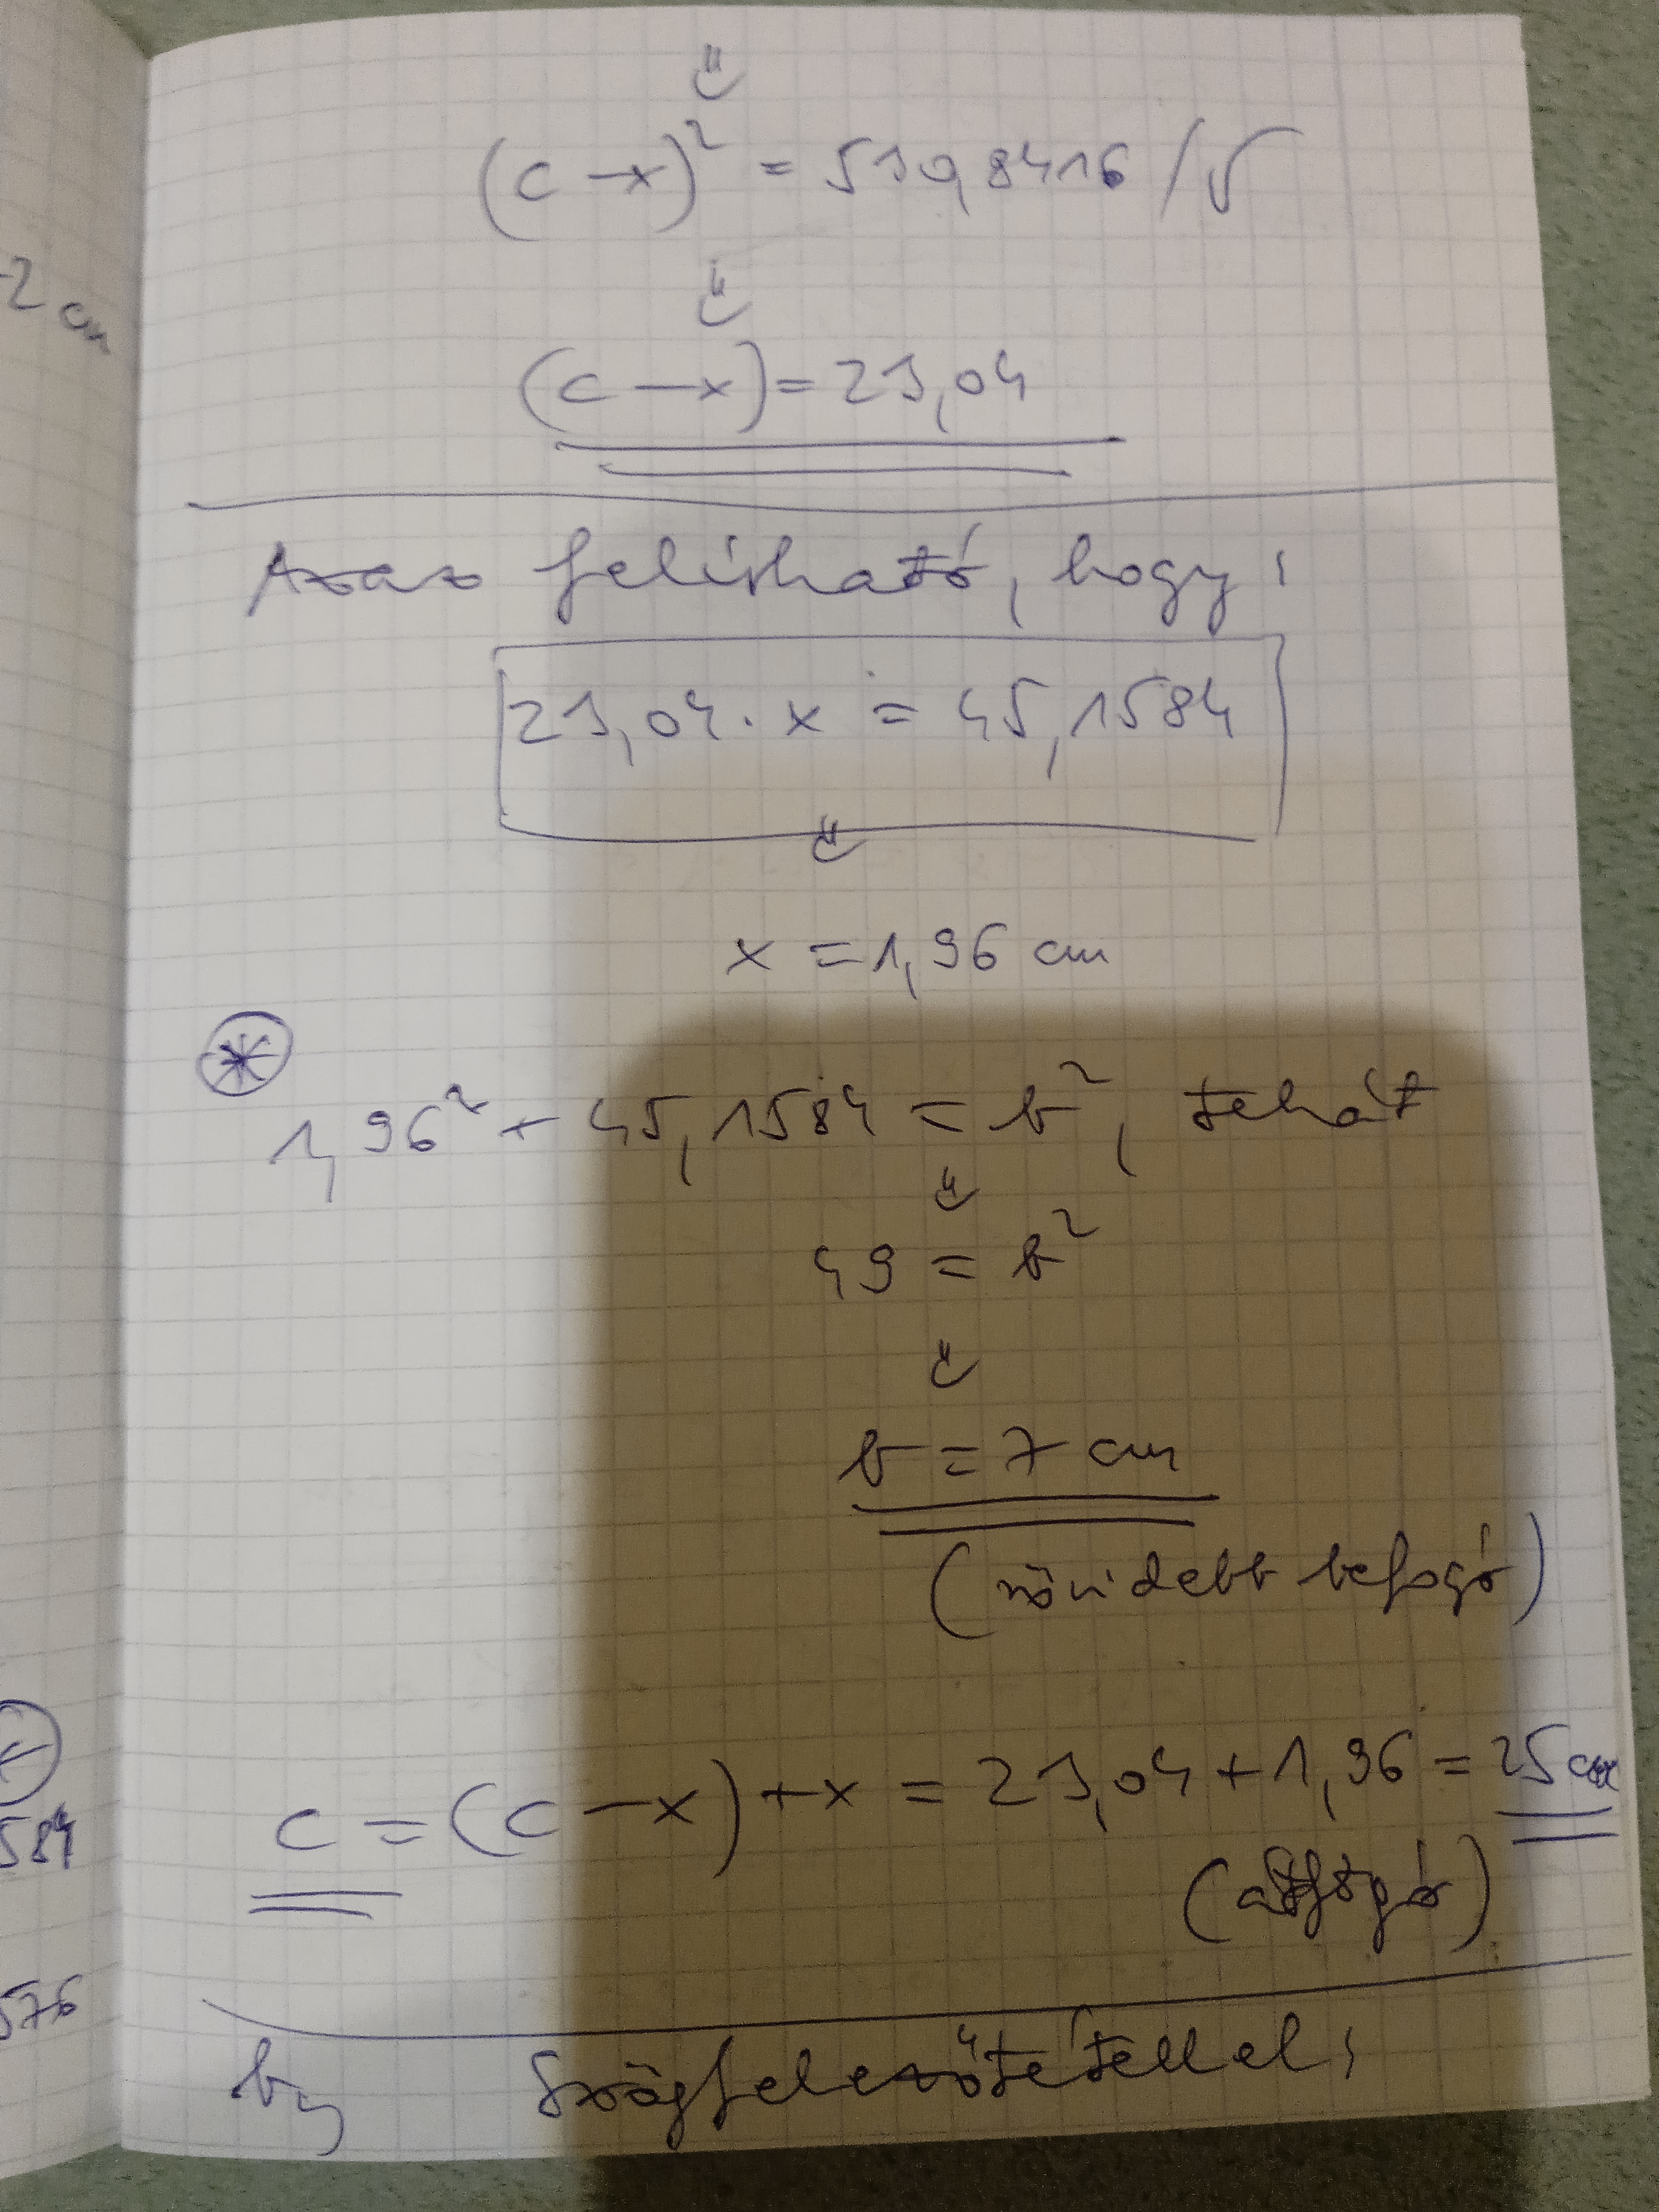 (c-x)² = 530,8416 /√
(c-x) = 23,04
Azaz felírható, hogy:
23,04 · x = 45,1584
x = 1,96 cm
*
1,96² + 45,1584 = b², tehát
49 = b²
b = 7 cm
(rövidebb befogó)
c = (c-x) + x = 23,04 + 1,96 = 25 cm
(átfogó)
b, Szögfelezőtétellel:
2 cm
584
576